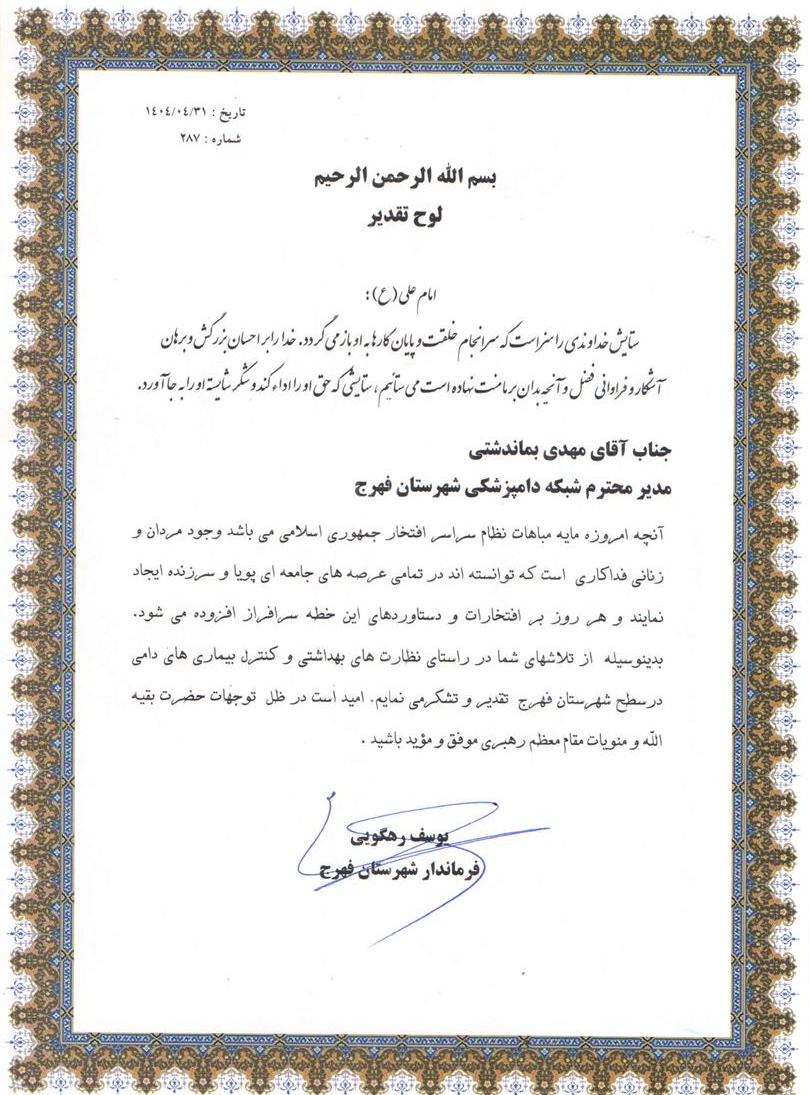 تاریخ : ۱٤۰٤/۰٤/۳۱
شماره : ۲۸۷
بسم الله الرحمن الرحیم
لوح تقدیر
امام علی (ع) :
ستایش خداوندی را سزاست که سرانجام خلقت و پایان کارها به او باز می گردد. خدا را بر احسان بزرگش و برهان
آشکار و فراوانی فضل و آنچه بدان بر ما منت نهاده است می ستائیم ، ستایشی که حق او را اداء کند و شکر شایسته او را به جا آورد.
جناب آقای مهدی بماندشتی
مدیر محترم شبکه دامپزشکی شهرستان فهرج
آنچه امروزه مایه مباهات نظام سراسر افتخار جمهوری اسلامی می باشد وجود مردان و
زنانی فداکاری است که توانسته اند در تمامی عرصه های جامعه ای پویا و سرزنده ایجاد
نمایند و هر روز بر افتخارات و دستاوردهای این خطه سرافراز افزوده می شود.
بدینوسیله از تلاشهای شما در راستای نظارت های بهداشتی و کنترل بیماری های دامی
درسطح شهرستان فهرج تقدیر و تشکرمی نمایم. امید است در ظل توجهات حضرت بقیه
الله و منویات مقام معظم رهبری موفق و مؤید باشید .
یوسف رهگویی
فرماندار شهرستان فهرج